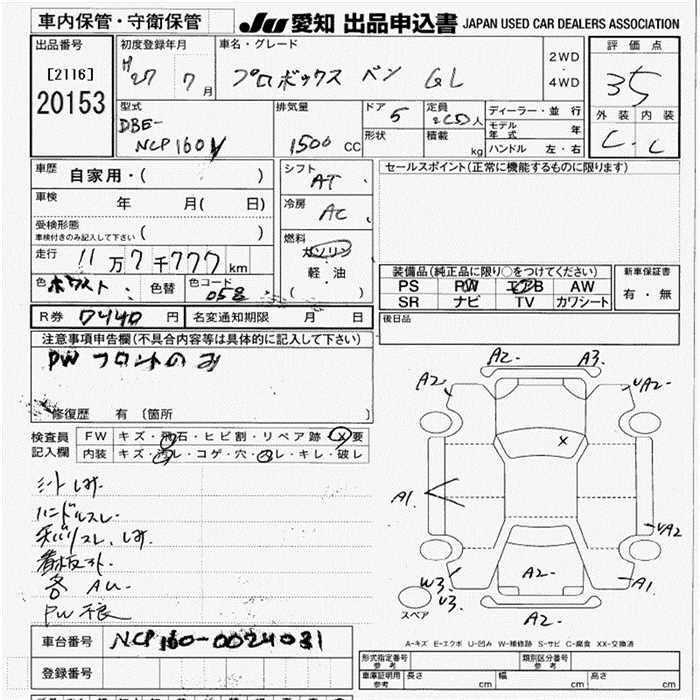 車内保管・守衛保管
JU 愛知 出品申込書 JAPAN USED CAR DEALERS ASSOCIATION
出品番号
[2116]
20153
初度登録年月
H27 7 月
車名・グレード
プロボックス バン GL
2WD
・
4WD
評価点
35
外装 内装
C. C
型式
DBE-
NCP160V
排気量
1500 CC
ドア
5
形状
定員
人
積載
kg
ディーラー・並行
モデル年式 年
ハンドル 左・右
車歴
自家用・( )
車検
年 月( 日)
受検形態
車検付きのみ記入して下さい ( )
走行
11万7千777km
色
ホワイト
色替
色コード
058
シフト
AT
冷房
AC
燃料
ガソリン
軽・油
( )
セールスポイント(正常に機能するものに限ります)
装備品(純正品に限り○をつけてください)
PS PW エアB AW
SR ナビ TV カワシート
新車保証書
有・無
R券 7440 円
名変通知期限 月 日
後日品
注意事項申告欄(不具合内容等は具体的に記入して下さい)
PW フロントのみ
修復歴 有〔箇所 〕
検査員
記入欄
FW キズ・飛石・ヒビ割・リペア跡・X要
内装 キズ・汚レ・コゲ・穴・スレ・キレ・破レ
シートしみ
ハンドルスレ
天バリスレ、しみ
看板跡
各 AU
PW不良
A2 A3
A2 UA2
X
A1
UA2
A2
W3
U3
A1
スペア
A2
A-キズ E-エクボ U-凹み W-補修跡 S-サビ C-腐食 XX-交換済
車台番号
NCP160-0024031
登録番号
形式指定番号
参考
類別区分番号
参考
車庫証明用
参考
長さ cm 幅 cm 高さ cm